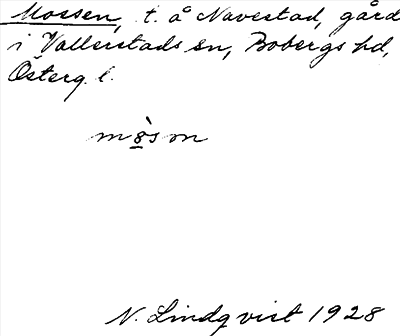 Mossen, t. å Navestad, gård
i Vallerstads sn, Bobergs hd,
Österg. l.
mò̲sm
N. Lindqvist 1928